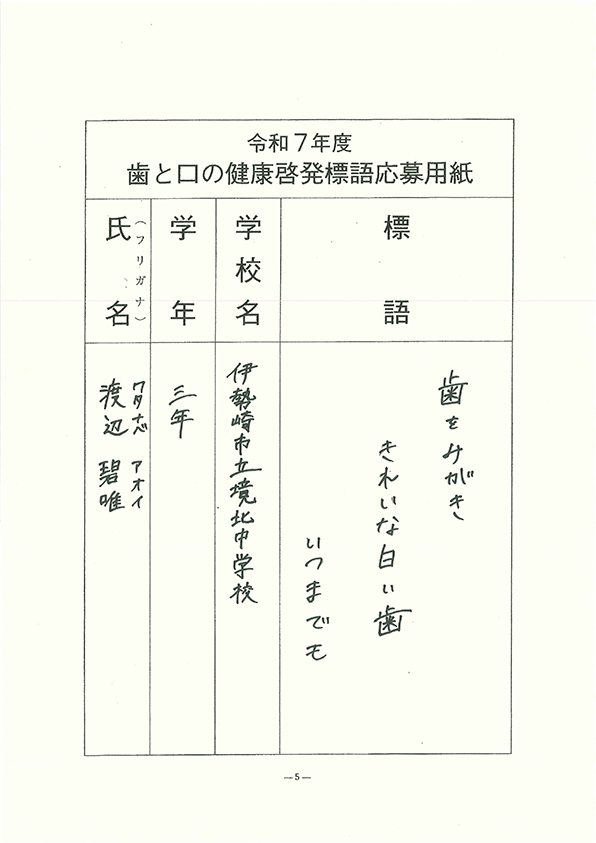 令和7年度
歯と口の健康啓発標語応募用紙
標語
歯をみがき
きれいな白い歯
いつまでも
学校名
伊勢崎市立境北中学校
学年
三年
氏名
（フリガナ）
ワタナベ アオイ
渡辺 碧唯
―5―